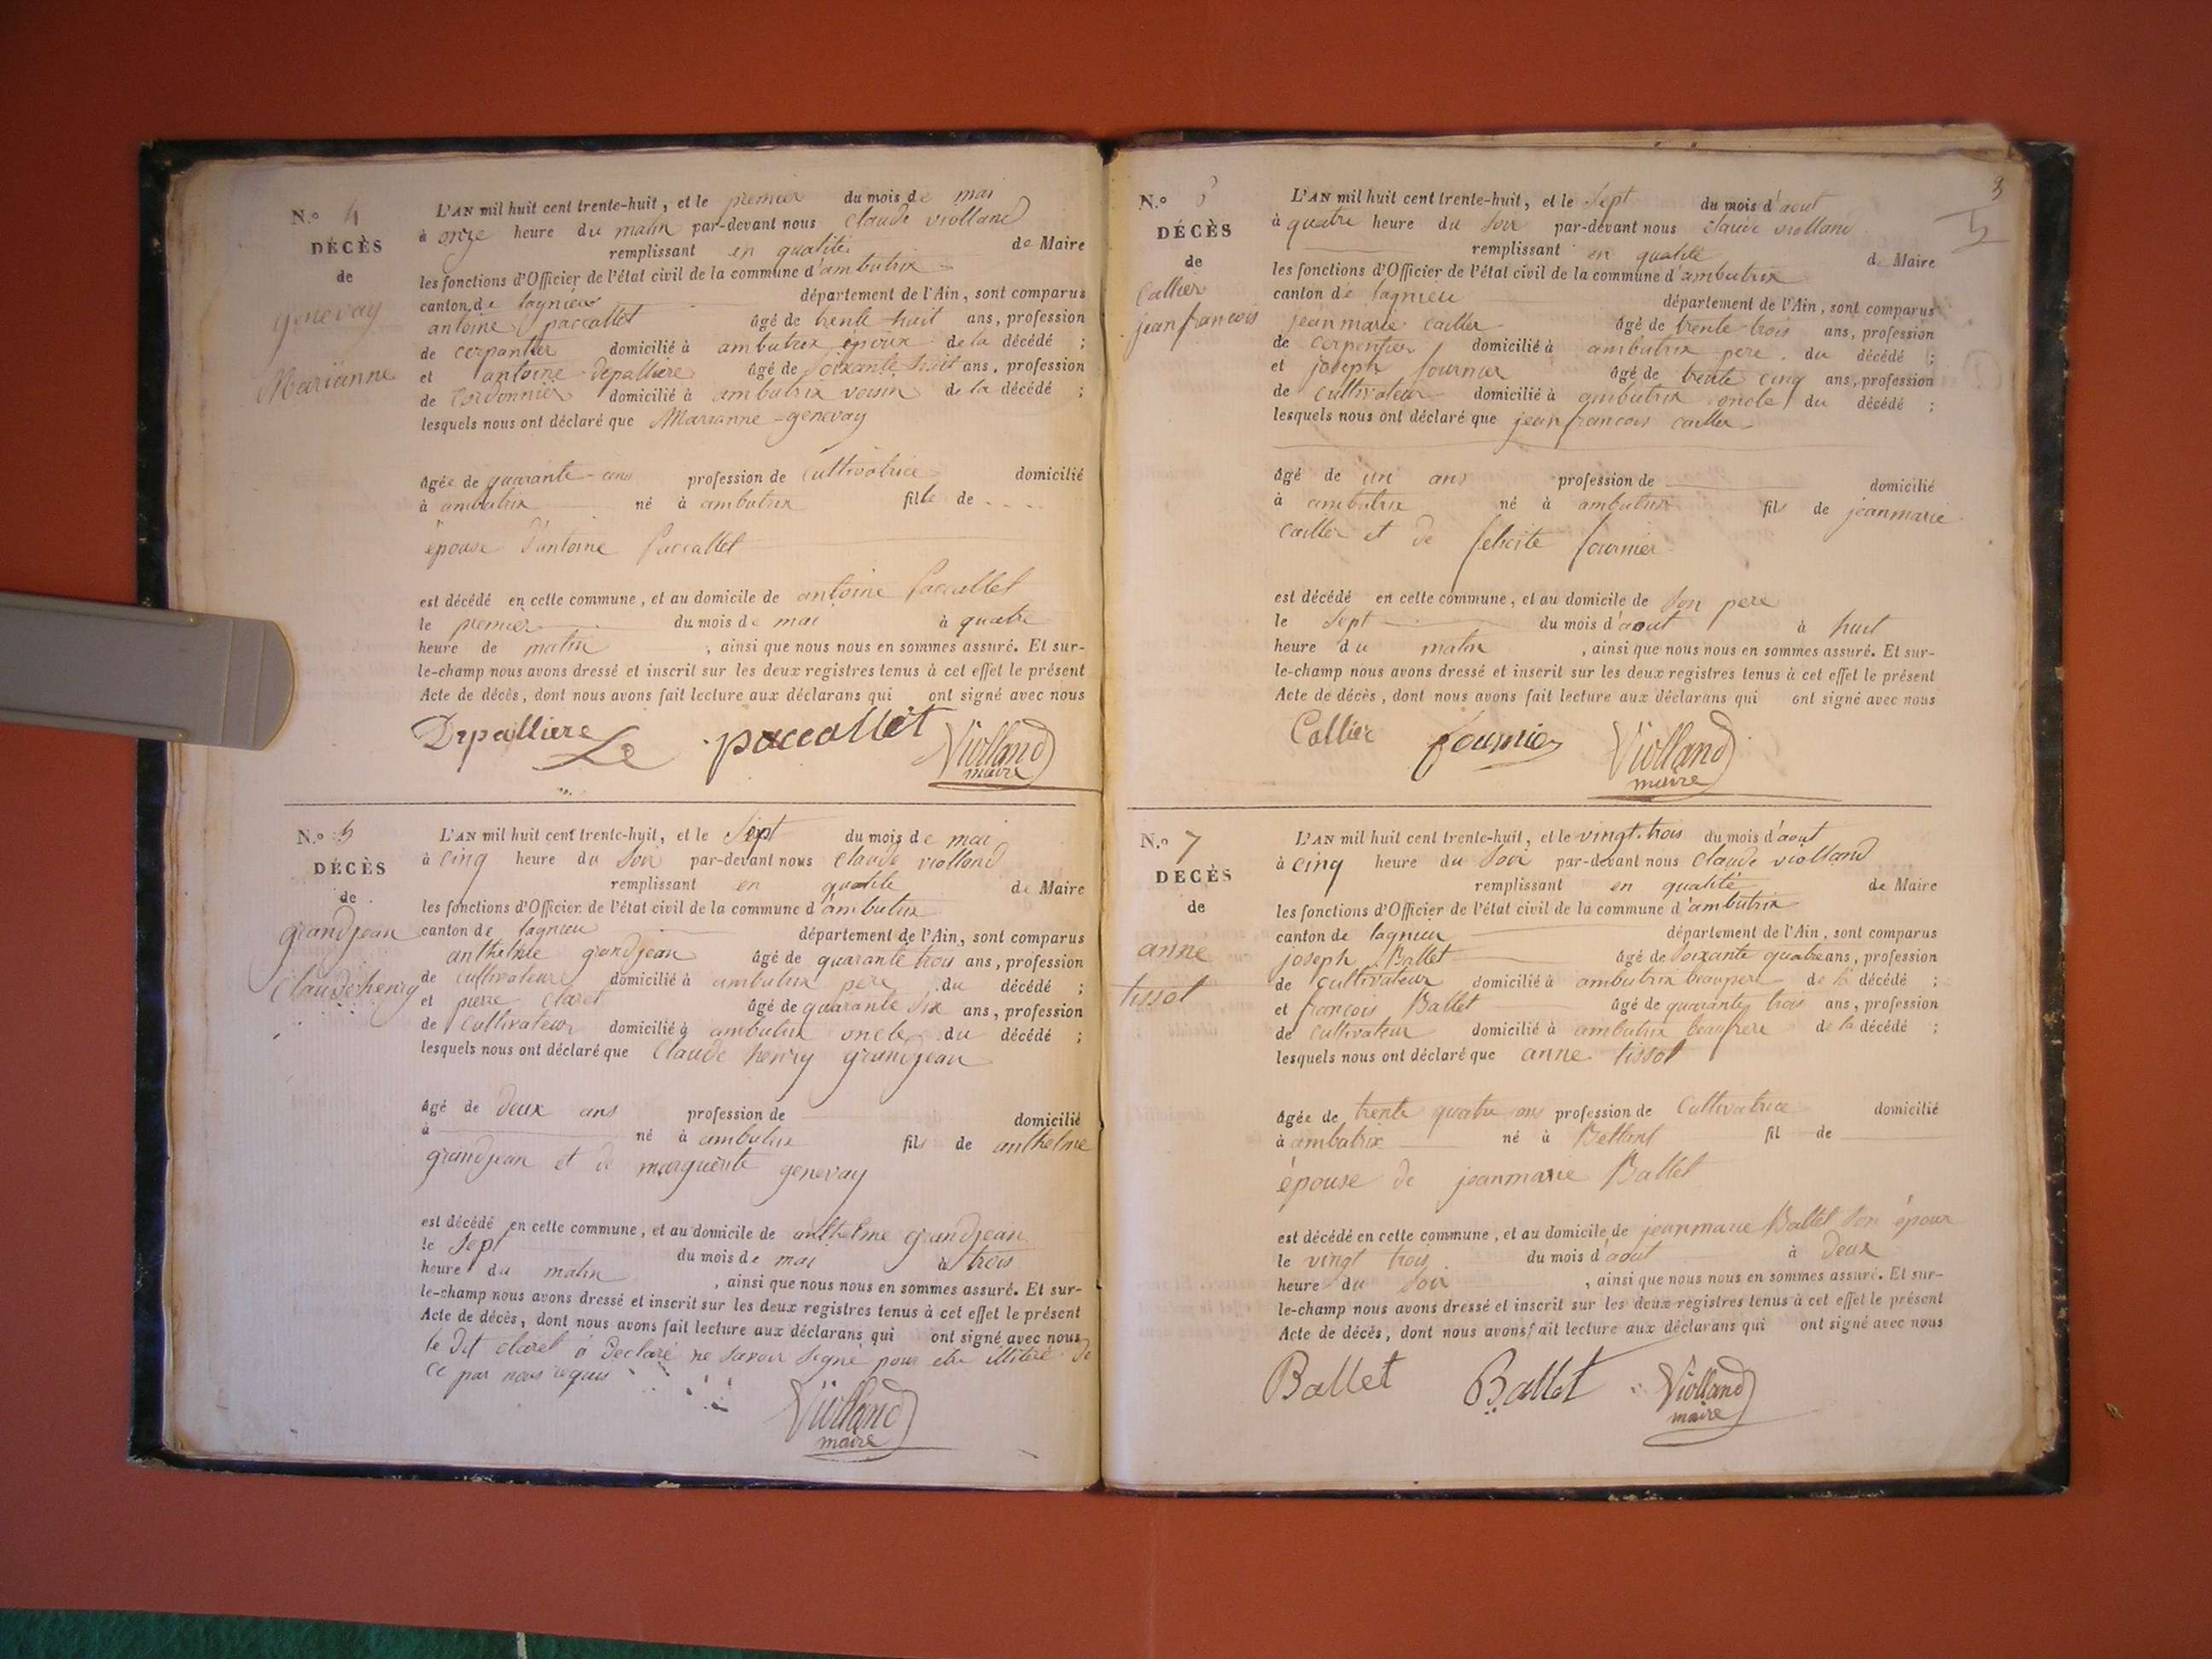 N.o 4
DÉCÈS
de
genevay
Marianne
L'AN mil huit cent trente-huit, et le premier du mois de mai
à onze heure du matin par-devant nous Claude violland
remplissant en qualité de Maire
les fonctions d'Officier de l'état civil de la commune d'ambutrix
canton de lagnieu département de l'Ain, sont comparus
antoine paccallet âgé de trente huit ans, profession
de carpantier domicilié à ambutrix époux de la décédé ;
et antoine depalliere âgé de soixante huit ans, profession
de Cordonnier domicilié à ambutrix voisin de la décédé ;
lesquels nous ont déclaré que Marianne genevay
âgée de quarante ans profession de Cultivatrice domicilié
à ambutrix né à ambutrix fille de
épouse d'antoine paccallet
est décédé en cette commune, et au domicile de antoine paccallet
le premier du mois de mai à quatre
heure de matin , ainsi que nous nous en sommes assuré. Et sur-
le-champ nous avons dressé et inscrit sur les deux registres tenus à cet effet le présent
Acte de décès, dont nous avons fait lecture aux déclarans qui ont signé avec nous
Depalliere Le paccallet Violland
maire
N.o 5
DÉCÈS
de
grandjean
Claude henry
L'AN mil huit cent trente-huit, et le Sept du mois de mai
à cinq heure du Soir par-devant nous Claude violland
remplissant en qualité de Maire
les fonctions d'Officier de l'état civil de la commune d'ambutrix
canton de lagnieu département de l'Ain, sont comparus
anthelme grandjean âgé de quarante trois ans, profession
de cultivateur domicilié à ambutrix pere du décédé ;
et pierre Claret âgé de quarante six ans, profession
de Cultivateur domicilié à ambutrix oncle du décédé ;
lesquels nous ont déclaré que Claude henry grandjean
âgé de deux ans profession de domicilié
à né à ambutrix fils de anthelme
grandjean et de marguerite genevay
est décédé en cette commune, et au domicile de anthelme grandjean
le Sept du mois de mai à trois
heure du matin , ainsi que nous nous en sommes assuré. Et sur-
le-champ nous avons dressé et inscrit sur les deux registres tenus à cet effet le présent
Acte de décès, dont nous avons fait lecture aux déclarans qui ont signé avec nous
le dit claret a declaré ne savoir signé pour etre illiteré de
ce par nous requis
Violland
maire
3
N.o
DÉCÈS
de
Callier
jean francois
L'AN mil huit cent trente-huit, et le Sept du mois d'aout
à quatre heure du Soir par-devant nous Claude violland
remplissant en qualité de Maire
les fonctions d'Officier de l'état civil de la commune d'ambutrix
canton de lagnieu département de l'Ain, sont comparus
jean marie callier âgé de trente trois ans, profession
de carpentier domicilié à ambutrix pere du décédé ;
et joseph fournier âgé de trente cinq ans, profession
de cultivateur domicilié à ambutrix oncle du décédé ;
lesquels nous ont déclaré que jean francois callier
âgé de un ans profession de domicilié
à ambutrix né à ambutrix fils de jeanmarie
callier et de felicite fournier
est décédé en cette commune, et au domicile de son pere
le Sept du mois d'aout à huit
heure du matin , ainsi que nous nous en sommes assuré. Et sur-
le-champ nous avons dressé et inscrit sur les deux registres tenus à cet effet le présent
Acte de décès, dont nous avons fait lecture aux déclarans qui ont signé avec nous
Callier fournier Violland
maire
N.o 7
DÉCÈS
de
anne
tissot
L'AN mil huit cent trente-huit, et le vingt-trois du mois d'aout
à cinq heure du Soir par-devant nous Claude violland
remplissant en qualité de Maire
les fonctions d'Officier de l'état civil de la commune d'ambutrix
canton de lagnieu département de l'Ain, sont comparus
joseph Ballet âgé de soixante quatre ans, profession
de cultivateur domicilié à ambutrix beaupere de la décédé ;
et françois Ballet âgé de quarante trois ans, profession
de cultivateur domicilié à ambutrix beaufrere de la décédé ;
lesquels nous ont déclaré que anne tissot
âgée de trente quatre ans profession de Cultivatrice domicilié
à ambutrix né à fil de
épouse de jeanmarie Ballet
est décédé en cette commune, et au domicile de jeanmarie Ballet son époux
le vingt trois du mois d'aout à deux
heure du Soir , ainsi que nous nous en sommes assuré. Et sur-
le-champ nous avons dressé et inscrit sur les deux registres tenus à cet effet le présent
Acte de décès, dont nous avons fait lecture aux déclarans qui ont signé avec nous
Ballet Ballet Violland
maire